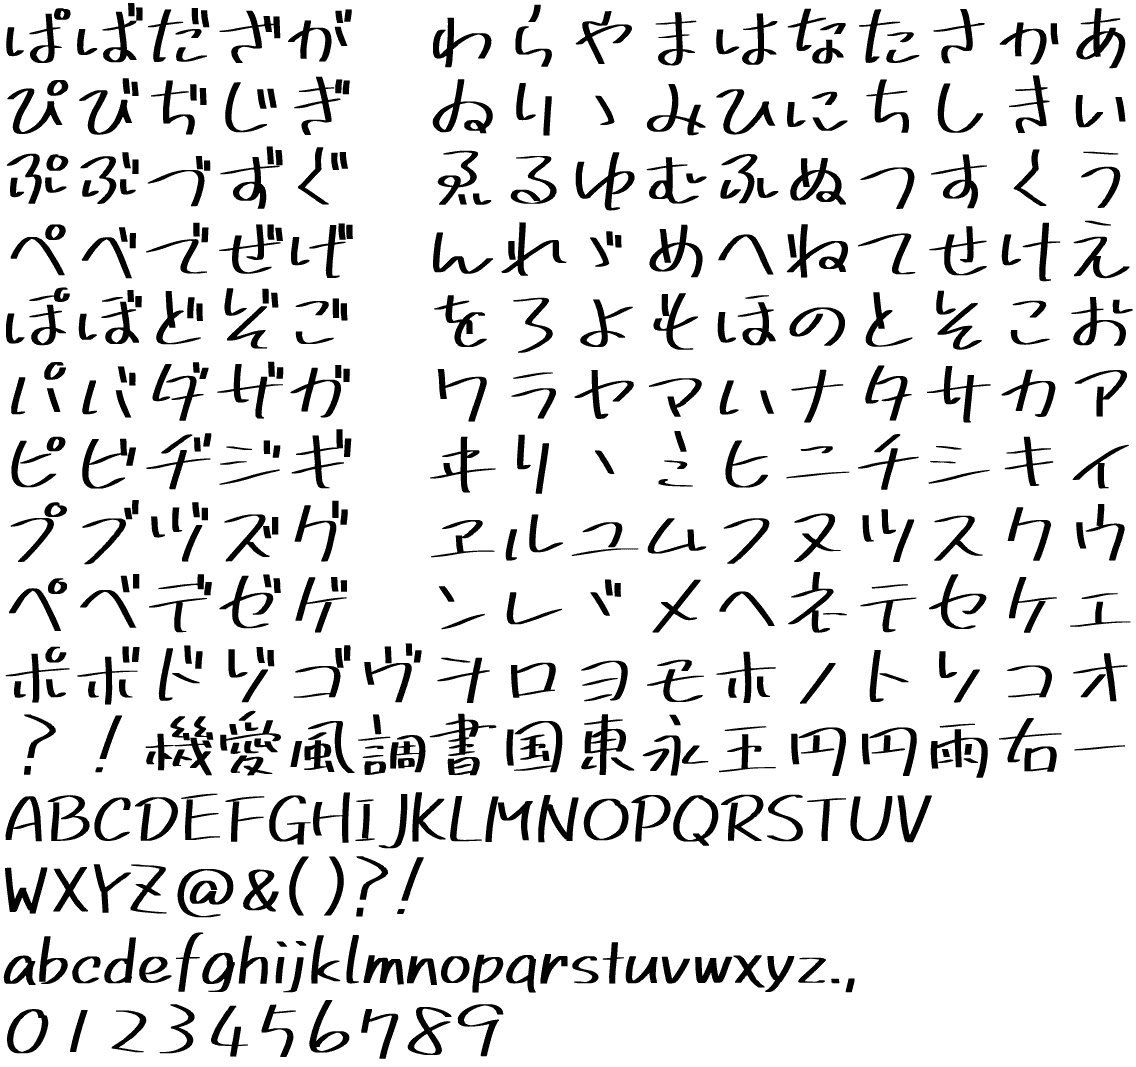 ぱばだざが わらやまはなたさかあ
ぴびぢじぎ ゐりゝみひにちしきい
ぷぶづずぐ ゑるゆむふぬつすくう
ぺべでぜげ んれゞめへねてせけえ
ぽぼどぞご をろよもほのとそこお
パバダザガ ワラヤマハナタサカア
ピビヂジギ ヰリヽミヒニチシキイ
プブヅズグ ヱルユムフヌツスクウ
ペベデゼゲ ンレヾメヘネテセケエ
ポボドゾゴヴヲロヨモホノトソコオ
？！機愛風調書国東永王円円雨右一
ABCDEFGHIJKLMNOPQRSTUV
WXYZ@&()?!
abcdefghijklmnopqrstuvwxyz.,
0123456789